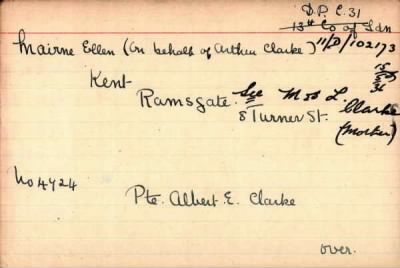 D.P. C.31
13th Co of Ldn
Mairne Ellen (On behalf of Arthur Clarke) 11/D/102173
Kent
Ramsgate. See Mrs L. Clarke
8 Turner St. (Mother)
No 4724
Pte. Albert E. Clarke
over.